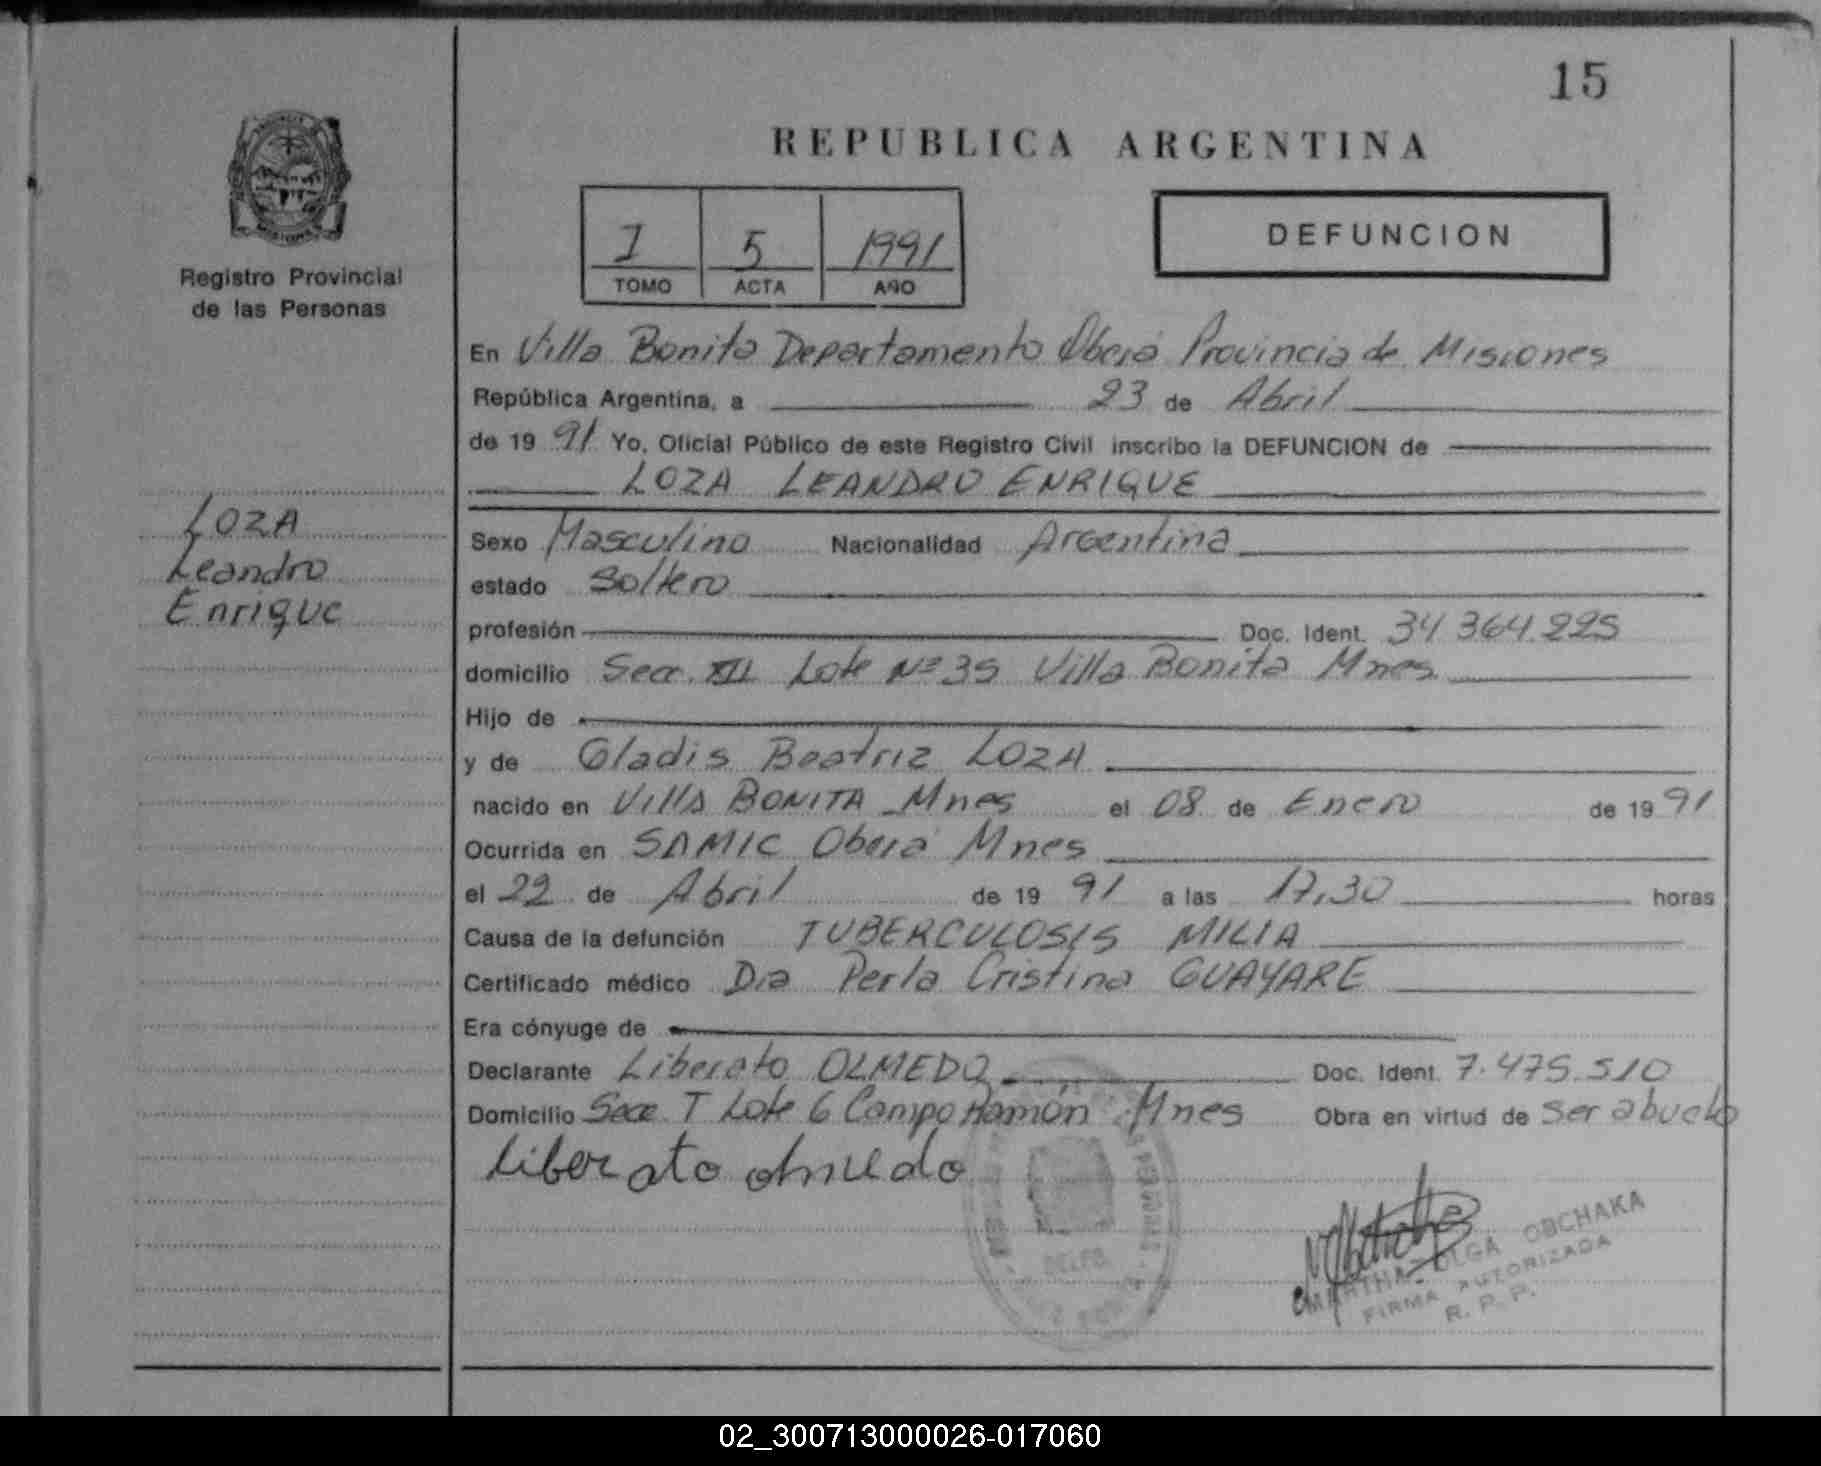 15
REPUBLICA ARGENTINA
Registro Provincial
de las Personas
I 5 1991
TOMO ACTA AÑO
DEFUNCION
En Villa Bonita Departamento Oberá Provincia de Misiones
República Argentina, a 23 de Abril
de 19 91 Yo, Oficial Público de este Registro Civil inscribo la DEFUNCION de
LOZA LEANDRO ENRIQUE
LOZA
Leandro
Enrique
Sexo Masculino Nacionalidad Argentina
estado Soltero
profesión Doc. Ident. 34 364 225
domicilio Secc. XII Lote Nº 35 Villa Bonita Mnes
Hijo de
y de Gladis Beatriz LOZA
nacido en Villa BONITA Mnes el 08 de Enero de 19 91
Ocurrida en SAMIC Oberá Mnes
el 22 de Abril de 19 91 a las 17,30 horas
Causa de la defunción TUBERCULOSIS MILIA
Certificado médico Dra Perla Cristina GUAYARE
Era cónyuge de
Declarante Liberato OLMEDO Doc. Ident. 7.475.510
Domicilio Secc I Lote 6 Campo Ramón Mnes Obra en virtud de ser abuelo
Liberato olmedo
MARTHA OLGA OBCHAKA
FIRMA AUTORIZADA
R. P. P.
02_300713000026-017060